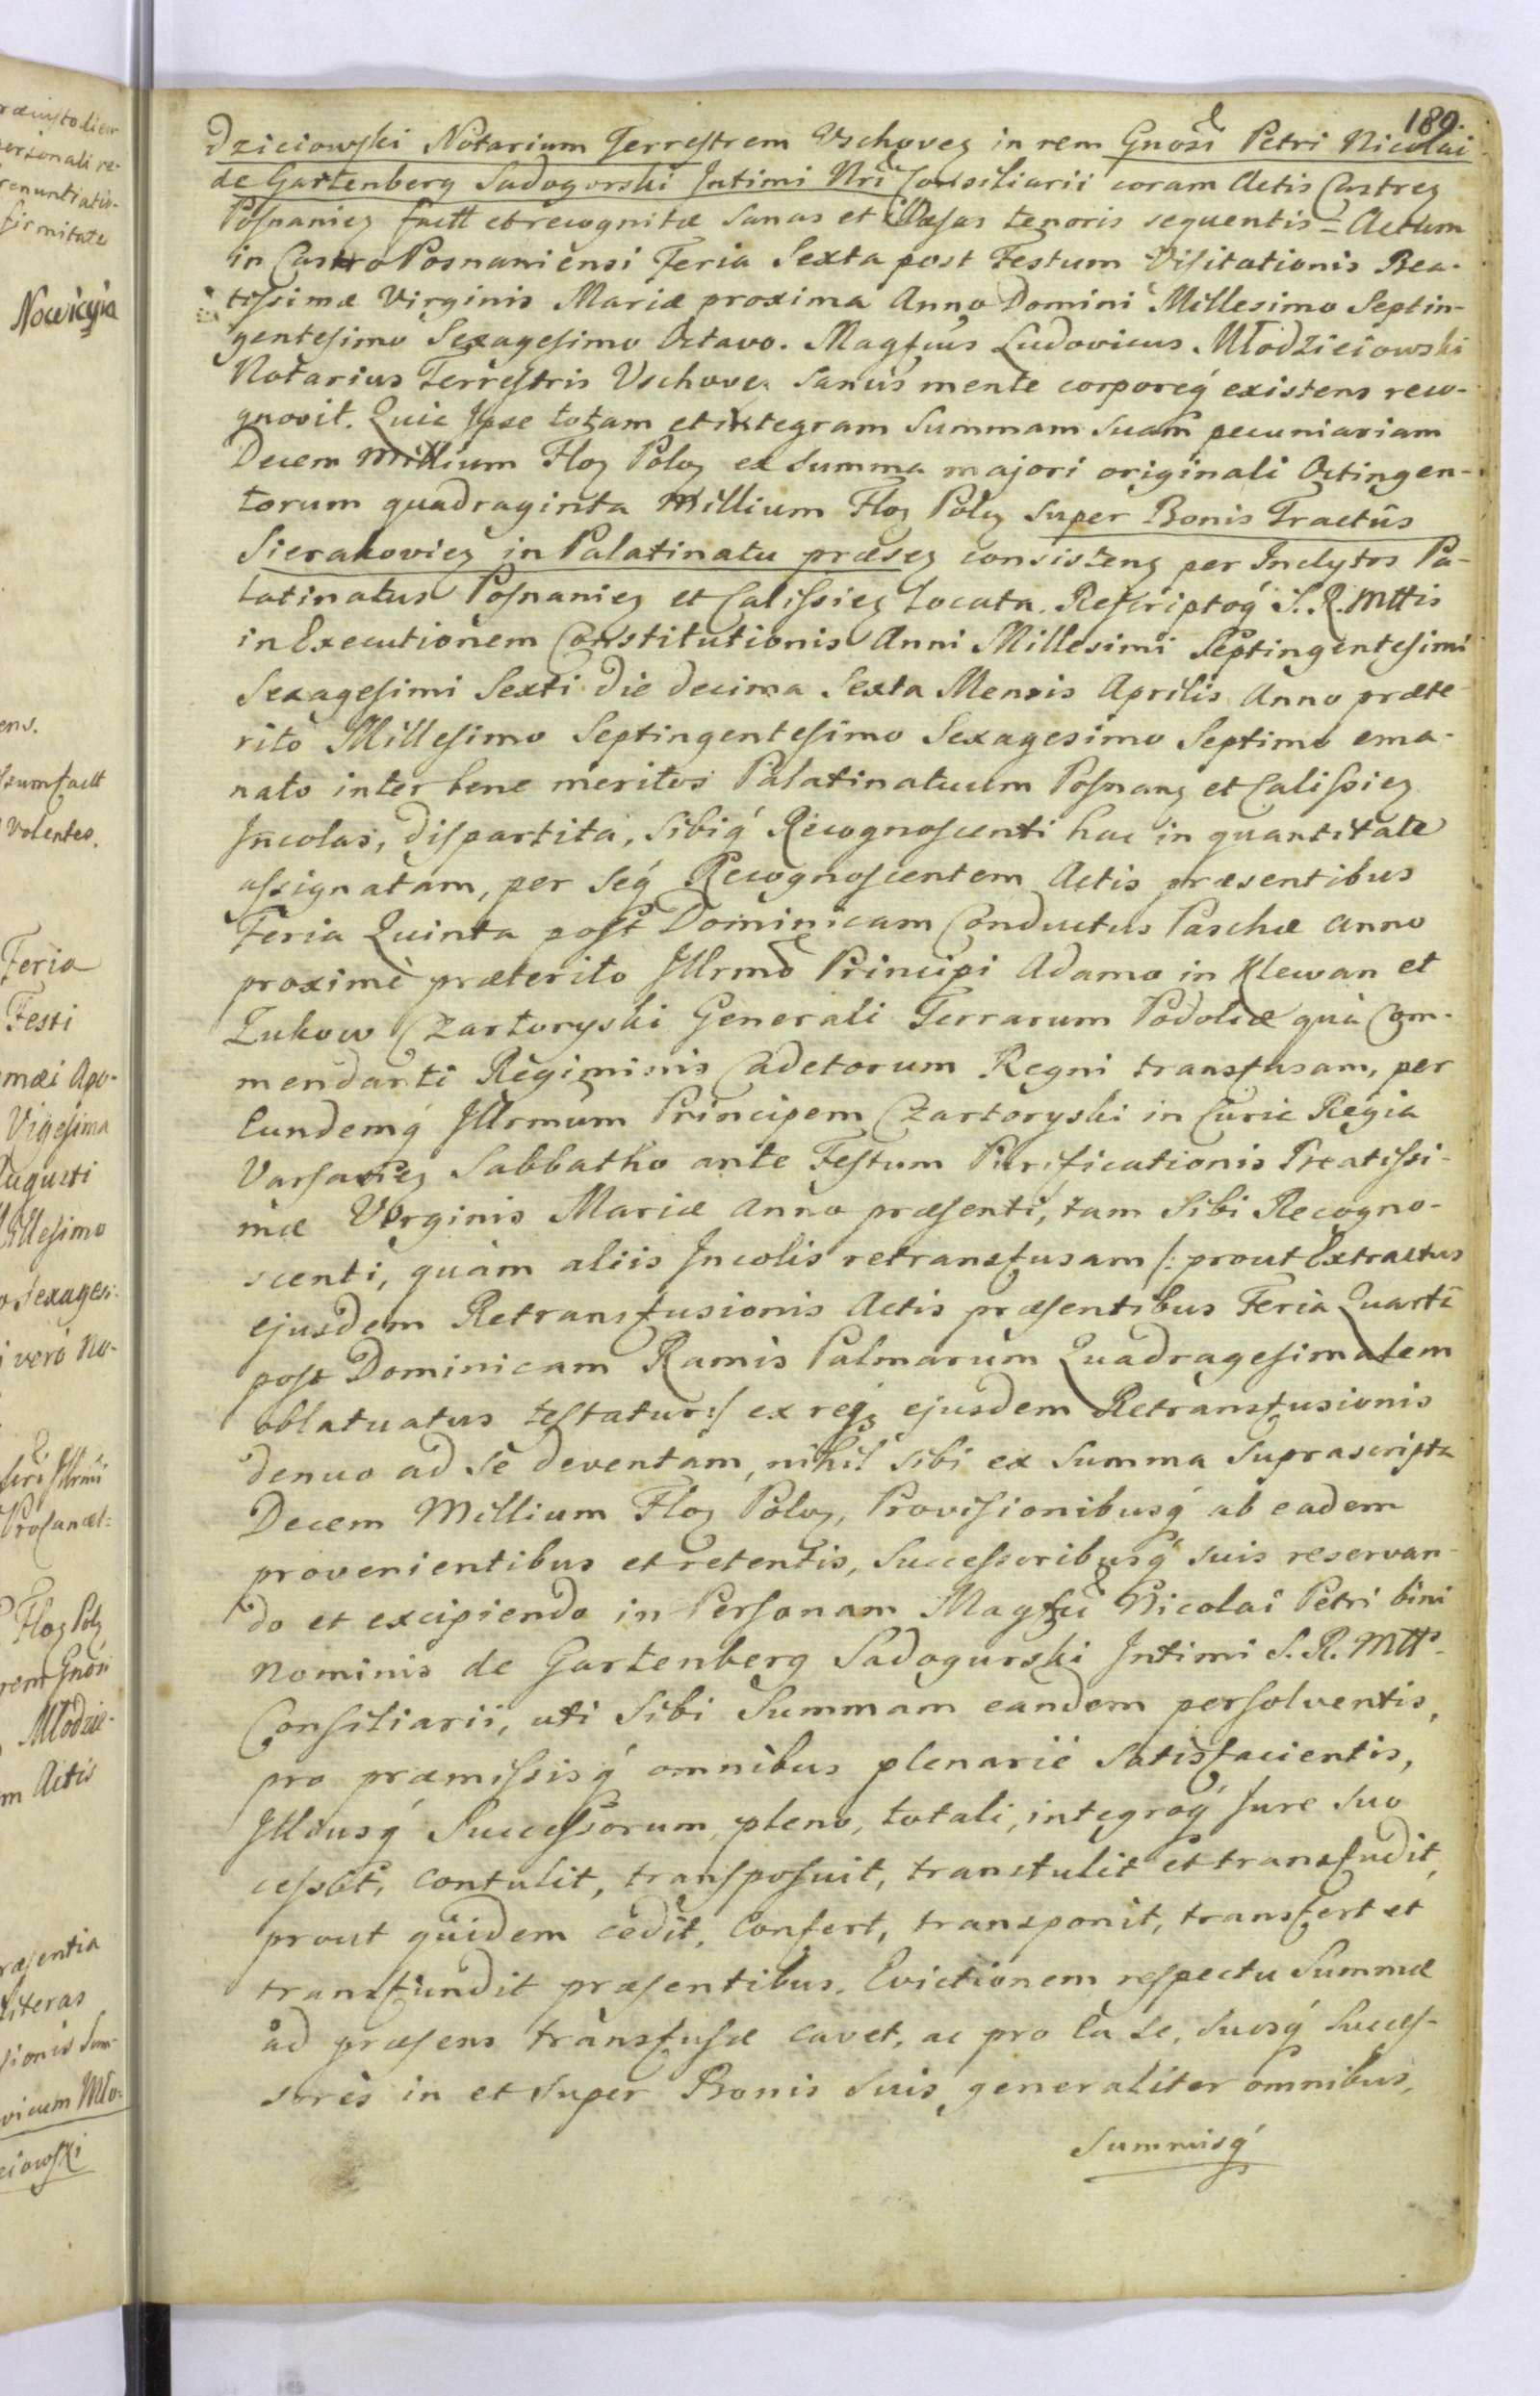 189.
Dziciowski Notarium Terrestrem Vschoveñ in rem Gnosi Petri Nicolai
de Gartenberg Sadogorski Intimi Nri Consiliarii coram Actis Castreñ
Posnanieñ factt et recognitæ sanas et illæsas tenoris sequentis = Actum
in Castro Posnaniensi Feria Sexta post Festum Visitationis Bea-
tissimæ Virginis Mariæ proxima Anno Domini Millesimo Septin-
gentesimo Sexagesimo Octavo. Magfcus Ludovicus Młodzieiowski
Notarius Terrestris Vschoveñ sanus mente corporeq́ existens reco-
gnovit. Quia Ipse totam et integram Summam suam pecuniariam
Decem Millium Floꝝ Poloꝝ ex summa majori originali Octingen-
torum quadraginta Millium Floꝝ Poloꝝ super Bonis Tractûs
Sierakovieñ in Palatinatu præseñ consisteñ per Inclytos Pa-
latinatus Posnanieñ et Calissieñ locata. Rescriptoq́ S. R. Mttis
in Executionem Constitutionis Anni Millesimi Septingentesimi
Sexagesimi Sexti die decima Sexta Mensis Aprilis Anno præte-
rito Millesimo Septingentesimo Sexagesimo Septimo ema-
nato inter bene meritos Palatinatuum Posnanꝫ et Calissieñ
Incolas, dispartita, sibiq́ Recognoscenti hac in quantitate
assignatam, per seq́ Recognoscentem Actis præsentibus
Feria Quinta post Dominicam Conductus Paschæ anno
proximè præterito Illrmo Principi Adamo in Klewan et
Zukow Czartoryski Generali Terrarum Podoliæ quà Com-
mendanti Regiminis Cadetorum Regni transfusam, per
Eundemq́ Illrmum Principem Czartoryski in Curia Regia
Varsavieñ Sabbatho ante Festum Purificationis Beatissi-
mæ Virginis Mariæ anno præsenti, tam sibi Recogno-
scenti, quàm aliis Incolis retransfusam /: prout Extractus
ejusdem Retransfusionis Actis præsentibus Feria Quarta
post Dominicam Ramis Palmarum Quadragesimalem
oblatuatus testatur :/ ex req́ ejusdem Retransfusionis
denuo ad se deventam, nihil sibi ex Summa suprascripta
Decem Millium Floꝝ Poloꝝ, Provisionibusq́ ab eadem
provenientibus et retentis, Successoribusq́ suis reservan-
do et excipiendo in Personam Magfci Nicolai Petri bini
Nominis de Gartenberg Sadogurski Intimi S. R. Mtts
Consiliarii, uti sibi Summam eandem persolventis,
pro præmissisq́ omnibus plenariè satisfacientis,
Illiusq́ Successorum, pleno, totali, integroq́ Jure suo
cessit, contulit, transposuit, transtulit et transfudit,
prout quidem cedit, confert, transponit, transfert et
transfundit præsentibus. Evictionem respectu Summæ
ad præsens transfusæ cavet, ac pro ea se, suosq́ Succes-
sores in et super Bonis suis generaliter omnibus,
Summisq́